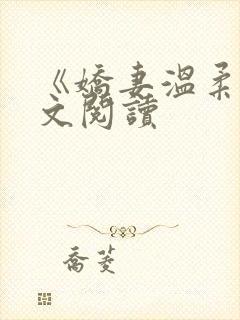 《嬌妻溫柔
文閱讀
喬菱